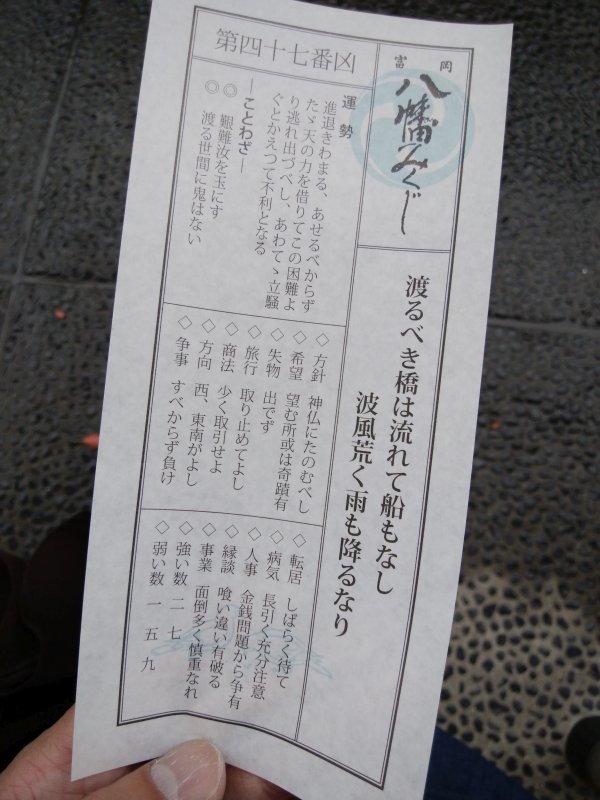 富岡
八幡みくじ
渡るべき橋は流れて船もなし
波風荒く雨も降るなり
第四十七番凶
運勢
進退きわまる、あせるべからず
たゞ天の力を借りてこの困難よ
り逃れ出づべし、あわてゝ立騒
ぐとかえつて不利となる
―ことわざ―
◎ 艱難汝を玉にす
◎ 渡る世間に鬼はない
◇ 方針 神仏にたのむべし
◇ 希望 望む所或は奇蹟有
◇ 失物 出でず
◇ 旅行 取り止めてよし
◇ 商法 少く取引せよ
◇ 方向 西、東南がよし
◇ 争事 すべからず負け
◇ 転居 しばらく待て
◇ 病気 長引く充分注意
◇ 人事 金銭問題から争有
◇ 縁談 喰い違い有破る
◇ 事業 面倒多く慎重なれ
◇ 強い数 二 七
◇ 弱い数 一 五 九